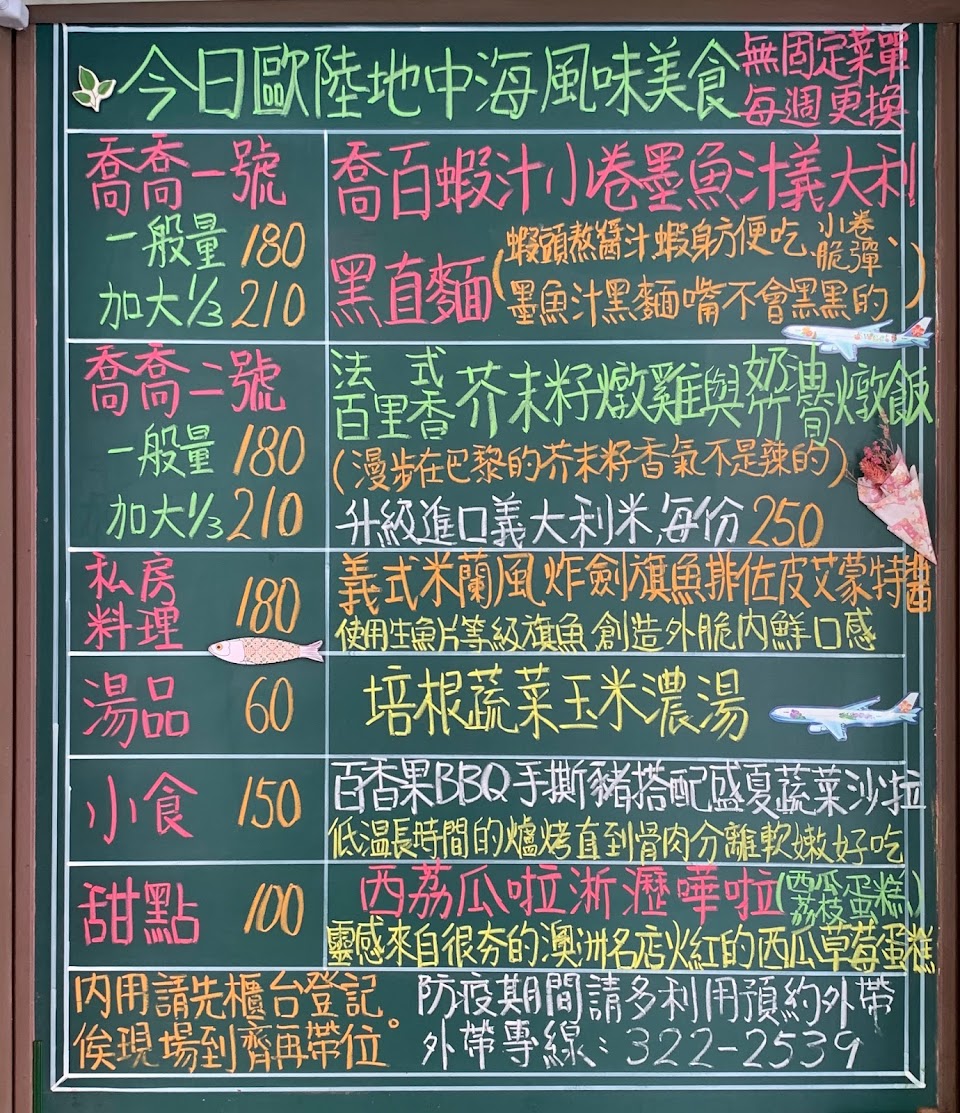 今日歐陸地中海風味美食
無固定菜單
每週更換
喬喬一號
一般量 180
加大1/3 210
喬百蝦汁小卷墨魚汁義大利
黑直麵
(蝦頭熬醬汁,蝦身方便吃、小卷脆彈、
墨魚汁黑麵嘴不會黑黑的)
喬喬二號
一般量 180
加大1/3 210
法式百里香芥末籽燉雞與奶油竹筍燉飯
(漫步在巴黎的芥末籽香氣不是辣的)
升級進口義大利米,每份250
私房料理 180
義式米蘭風炸劍旗魚排佐皮艾蒙特醬
使用生魚片等級旗魚,創造外脆內鮮口感
湯品 60
培根蔬菜玉米濃湯
小食 150
百香果BBQ手撕豬搭配盛夏蔬菜沙拉
低溫長時間的爐烤直到骨肉分離軟嫩好吃
甜點 100
西荔瓜啦淅瀝嘩啦(西瓜荔枝蛋糕)
靈感來自很夯的澳洲名店火紅的西瓜草莓蛋糕
內用請先櫃台登記
俟現場到齊再帶位。
防疫期間請多利用預約外帶
外帶專線:322-2539